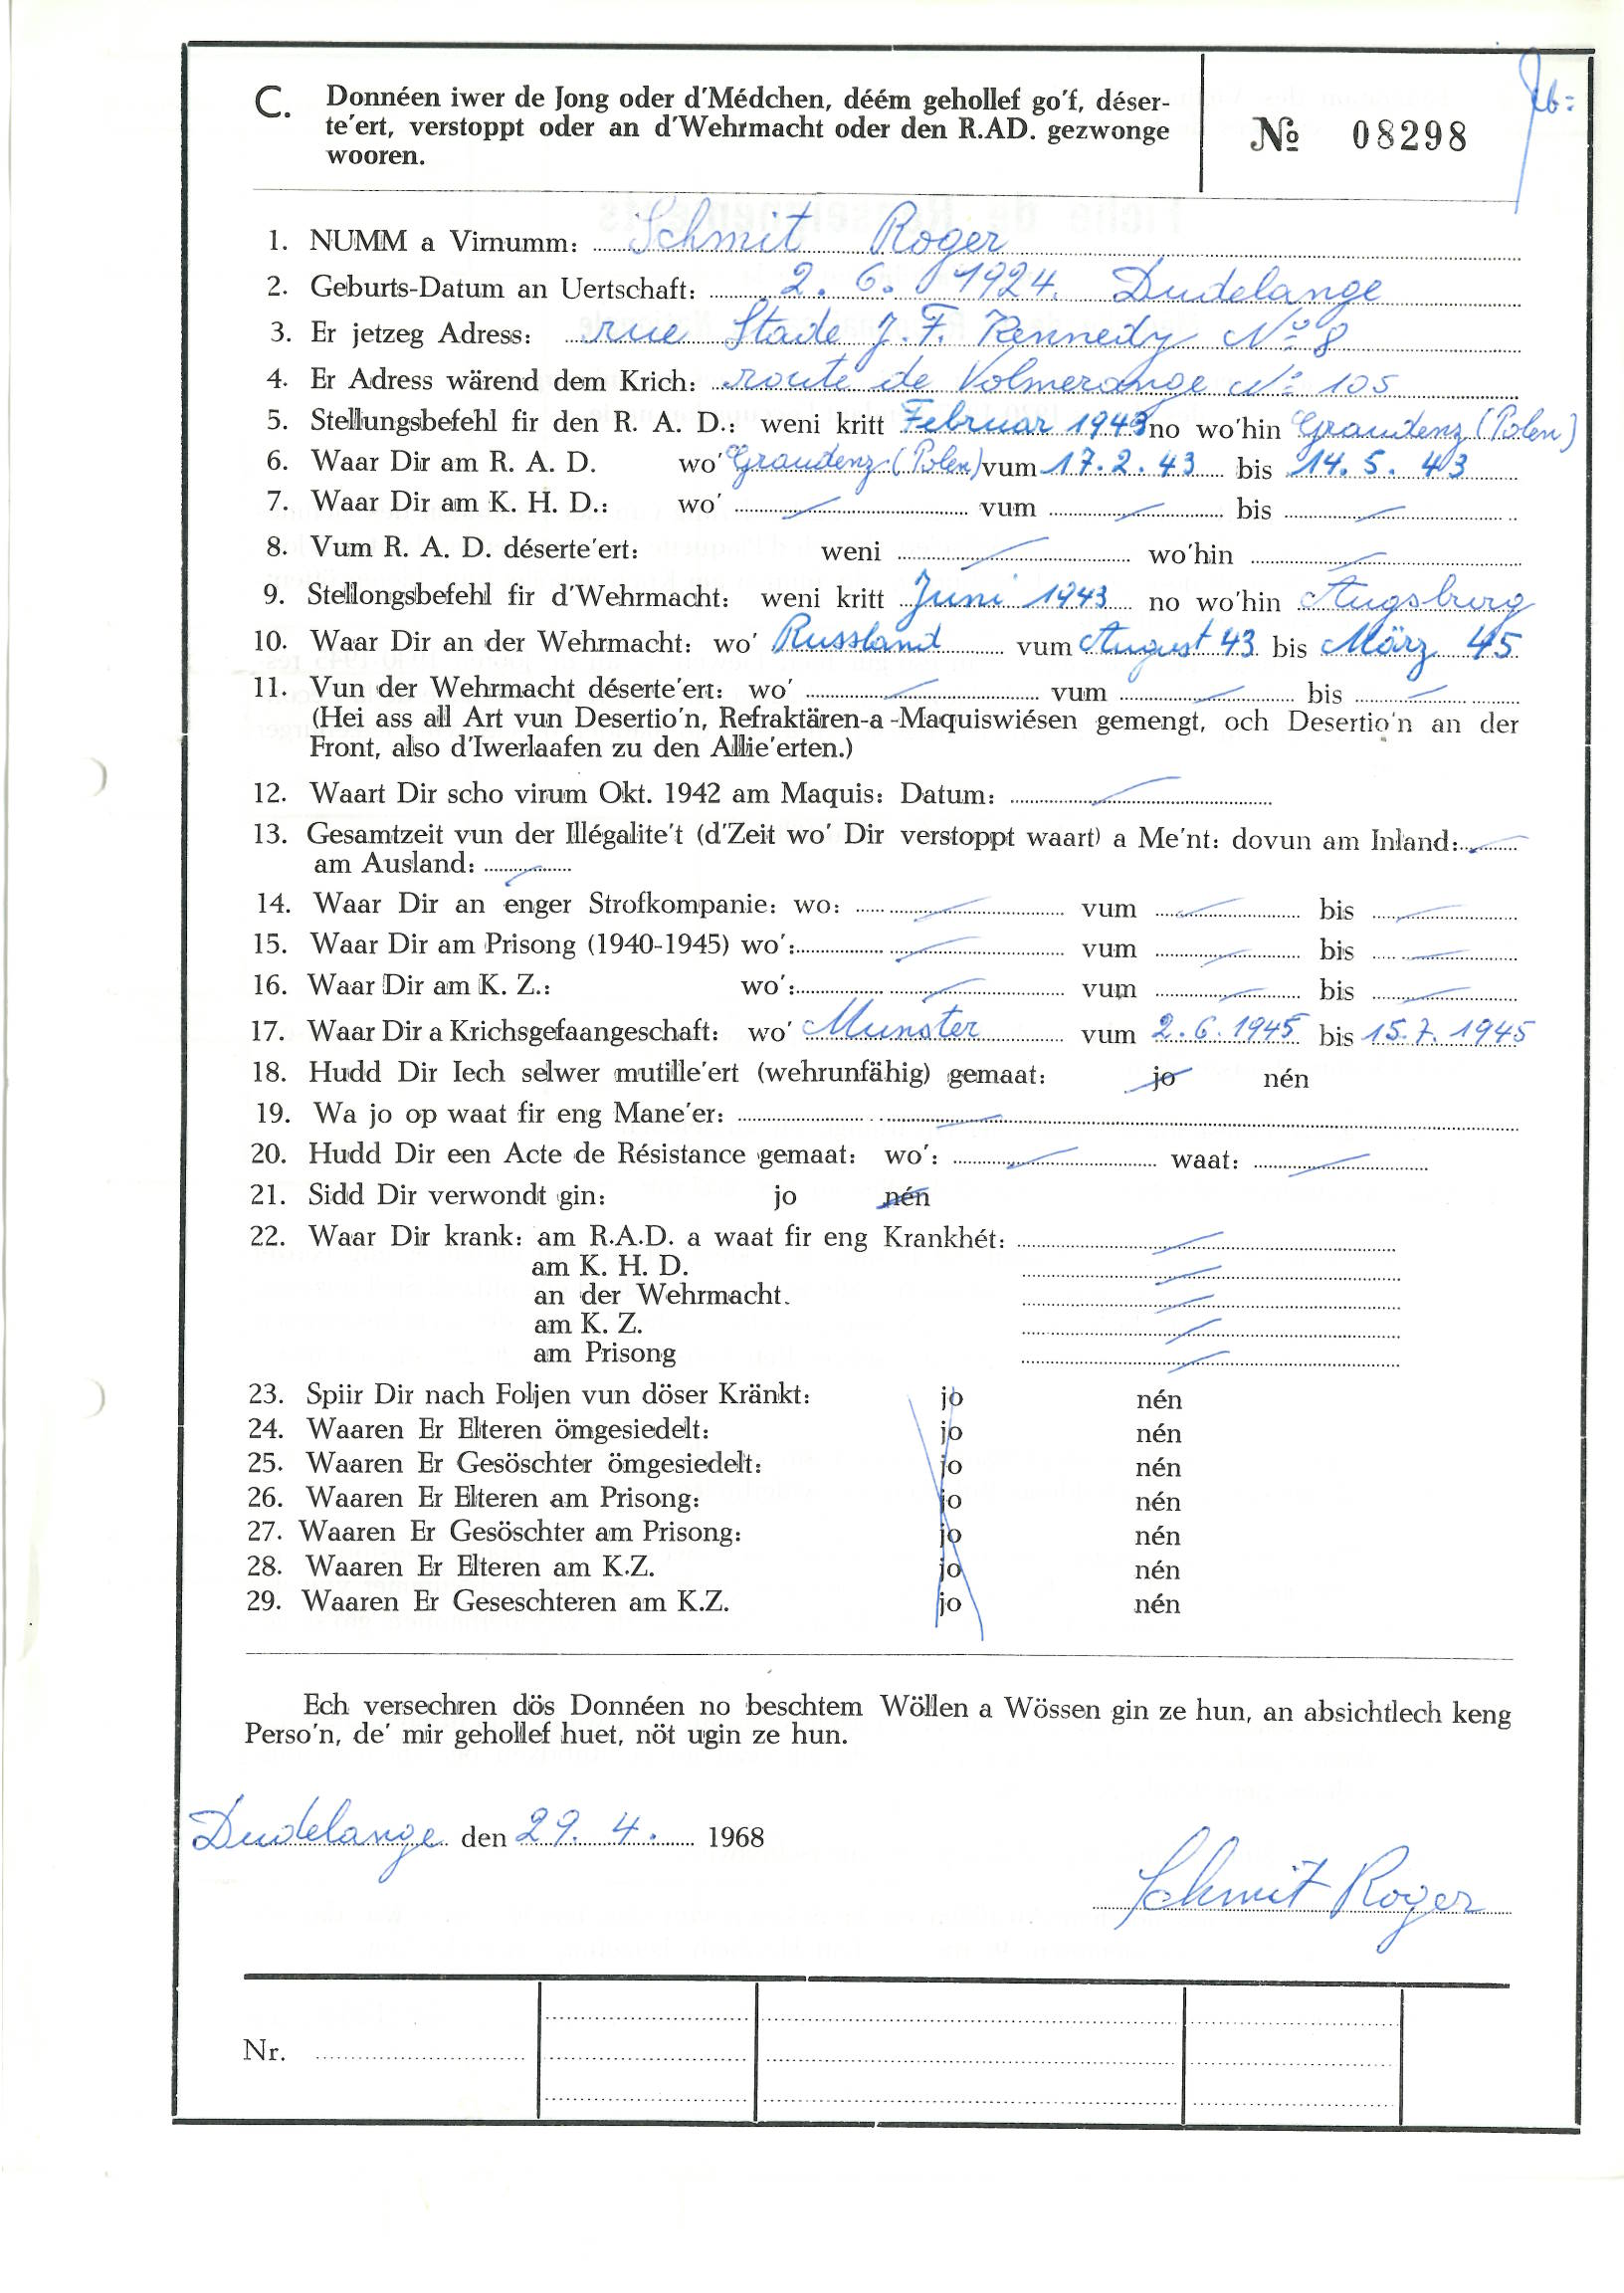 C. Donnéen iwer de Jong oder d'Médchen, déém gehollef go'f, déser-
te'ert, verstoppt oder an d'Wehrmacht oder den R.AD. gezwonge
wooren.
№ 08298
1. NUMM a Virnumm: Schmit Roger
2. Geburts-Datum an Uertschaft: 2. 6. 1924. Dudelange
3. Er jetzeg Adress: rue Stade J. F. Kennedy No 8
4. Er Adress wärend dem Krich: route de Volmerange No 105
5. Stellungsbefehl fir den R. A. D.: weni kritt Februar 1943 no wo'hin Graudenz (Polen)
6. Waar Dir am R. A. D. wo' Graudenz (Polen) vum 17. 2. 43 bis 14. 5. 43
7. Waar Dir am K. H. D.: wo' vum bis
8. Vum R. A. D. déserte'ert: weni wo'hin
9. Stellongsbefehl fir d'Wehrmacht: weni kritt Juni 1943 no wo'hin Augsburg
10. Waar Dir an der Wehrmacht: wo' Russland vum August 43 bis März 45
11. Vun der Wehrmacht déserte'ert: wo' vum bis
(Hei ass all Art vun Desertio'n, Refraktären-a-Maquiswiésen gemengt, och Desertio'n an der
Front, also d'Iwerlaafen zu den Allie'erten.)
12. Waart Dir scho virum Okt. 1942 am Maquis: Datum:
13. Gesamtzeit vun der Illégalite't (d'Zeit wo' Dir verstoppt waart) a Me'nt: dovun am Inland:
am Ausland:
14. Waar Dir an enger Strofkompanie: wo: vum bis
15. Waar Dir am Prisong (1940-1945) wo': vum bis
16. Waar Dir am K. Z.: wo': vum bis
17. Waar Dir a Krichsgefaangeschaft: wo' Munster vum 2. 6. 1945 bis 15. 7. 1945
18. Hudd Dir Iech selwer mutille'ert (wehrunfähig) gemaat: jo nén
19. Wa jo op waat fir eng Mane'er:
20. Hudd Dir een Acte de Résistance gemaat: wo': waat:
21. Sidd Dir verwondt gin: jo nén
22. Waar Dir krank: am R.A.D. a waat fir eng Krankhét:
am K. H. D.
an der Wehrmacht.
am K. Z.
am Prisong
23. Spiir Dir nach Foljen vun döser Kränkt: jo nén
24. Waaren Er Elteren ömgesiedelt: jo nén
25. Waaren Er Gesöschter ömgesiedelt: jo nén
26. Waaren Er Elteren am Prisong: jo nén
27. Waaren Er Gesöschter am Prisong: jo nén
28. Waaren Er Elteren am K.Z. jo nén
29. Waaren Er Geseschteren am K.Z. jo nén
Ech versechren dös Donnéen no beschtem Wöllen a Wössen gin ze hun, an absichtlech keng
Perso'n, de' mir gehollef huet, nöt ugin ze hun.
Dudelange den 29. 4. 1968
Schmit Roger
Nr.